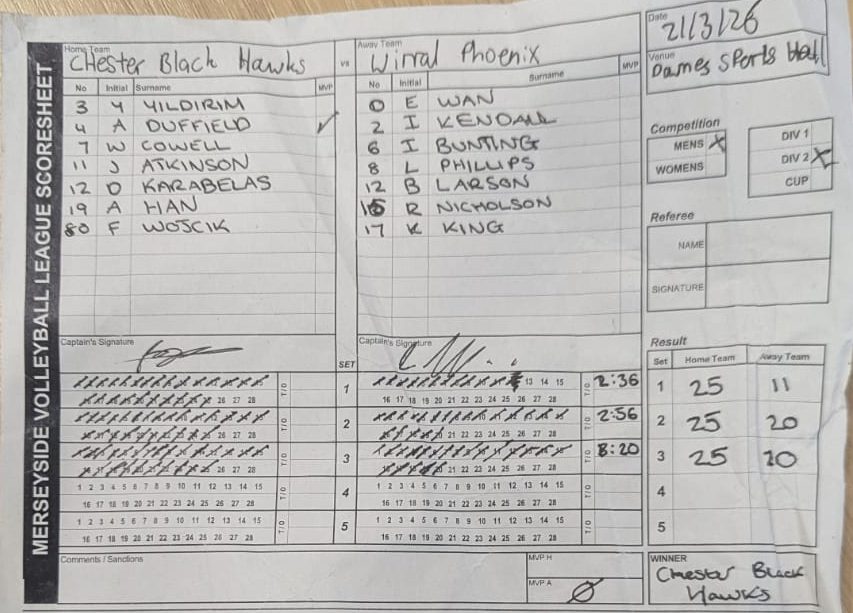 MERSEYSIDE VOLLEYBALL LEAGUE SCORESHEET
Home Team
Chester Black Hawks
vs
Away Team
Wirral Phoenix
Date
21/3/26
Venue
Dames Sports Hall
No Initial Surname MVP
3 Y YILDIRIM
4 A DUFFIELD ✓
7 W COWELL
11 J ATKINSON
12 D KARABELAS
19 A HAN
80 F WOJCIK
No Initial Surname MVP
0 E WAN
2 I KENDALL
6 I BUNTING
8 L PHILLIPS
12 B LARSON
R NICHOLSON
17 K KING
Competition
MENS X
WOMENS
DIV 1
DIV 2 X
CUP
Referee
NAME
SIGNATURE
Captain's Signature
SET
Captain's Signature
26 27 28 T/O
1
13 14 15
16 17 18 19 20 21 22 23 24 25 26 27 28 T/O 2:36
26 27 28 T/O
2
21 22 23 24 25 26 27 28 T/O 2:56
26 27 28 T/O
3
21 22 23 24 25 26 27 28 T/O 8:20
1 2 3 4 5 6 7 8 9 10 11 12 13 14 15
16 17 18 19 20 21 22 23 24 25 26 27 28 T/O
4
1 2 3 4 5 6 7 8 9 10 11 12 13 14 15
16 17 18 19 20 21 22 23 24 25 26 27 28 T/O
1 2 3 4 5 6 7 8 9 10 11 12 13 14 15
16 17 18 19 20 21 22 23 24 25 26 27 28 T/O
5
1 2 3 4 5 6 7 8 9 10 11 12 13 14 15
16 17 18 19 20 21 22 23 24 25 26 27 28 T/O
Result
Set Home Team Away Team
1 25 11
2 25 20
3 25 20
4
5
Comments / Sanctions
MVP H
MVP A
WINNER
Chester Black
Hawks